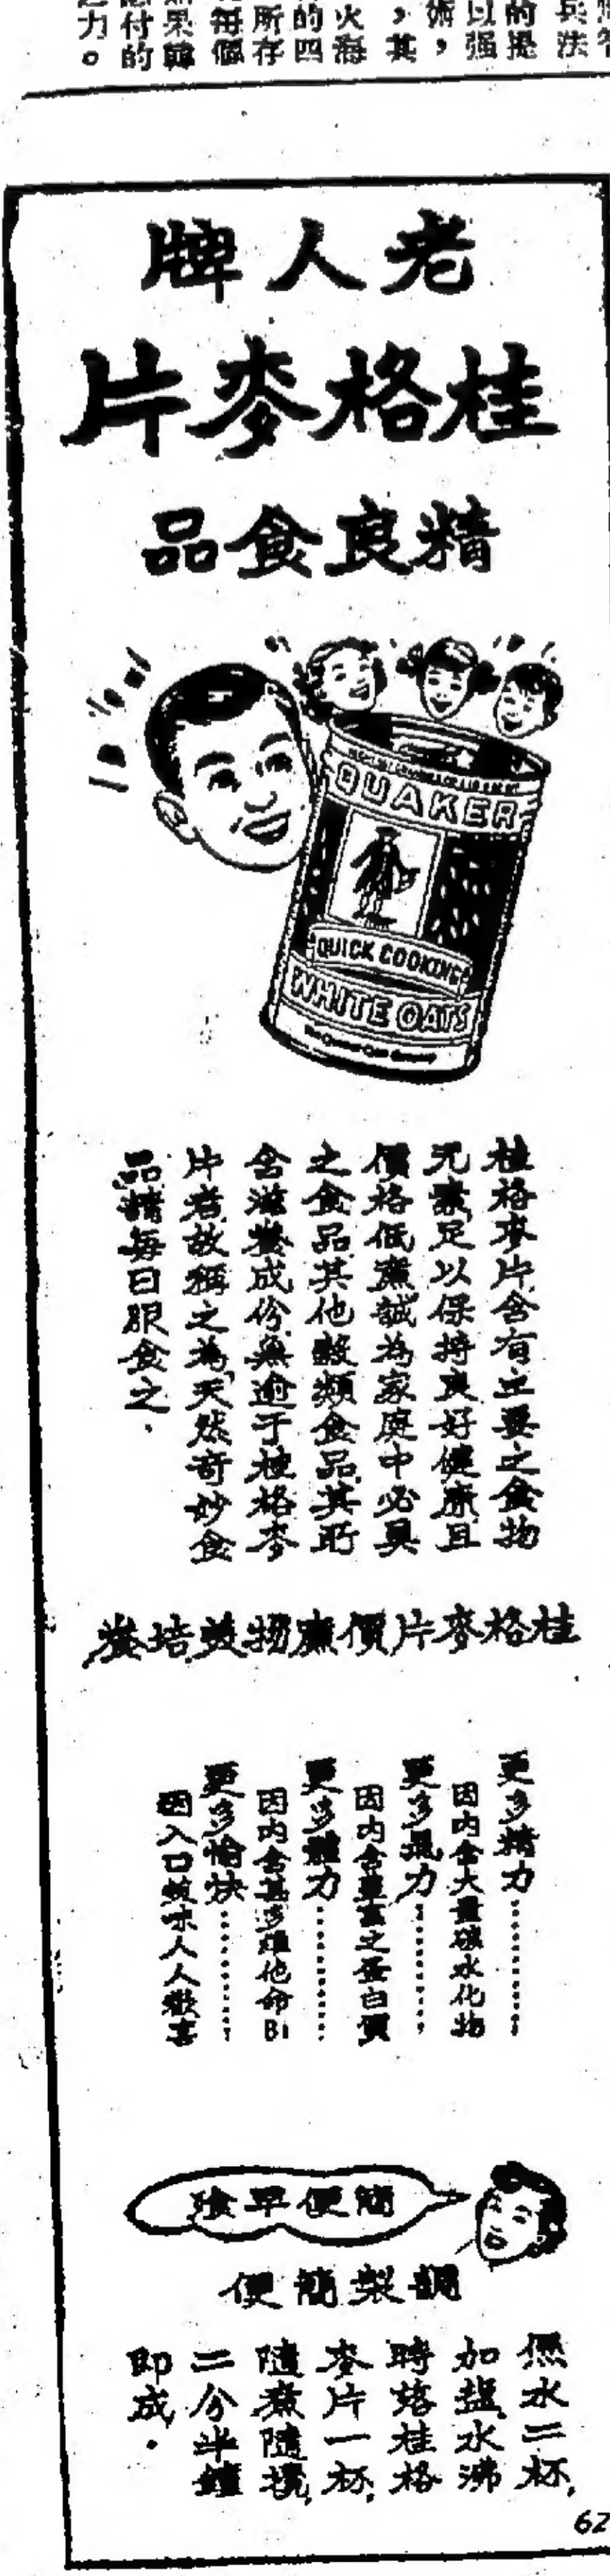 老人牌
桂格麥片
精良食品
QUAKER
QUICK COOKING
WHITE OATS
桂格麥片含有主要之食物
元素足以保持良好健康且
價格低廉誠為家庭中必具
之食品其他穀類食品其所
含滋養成份無逾于桂格麥
片者故稱之為天然奇妙食
品請每日服食之.
桂格麥片價廉物美培養
更多精力
因內含大量碳水化物
更多 力
因內含豐富之蛋白質
更多體力
因內含甚多維他命B1
更多愉快
因入口 味人人歡喜
簡便早飱
調製簡便
水二杯,
加鹽水沸
時 桂格
麥片一杯,
隨煮隨攪,
二分半鐘
即成.
62